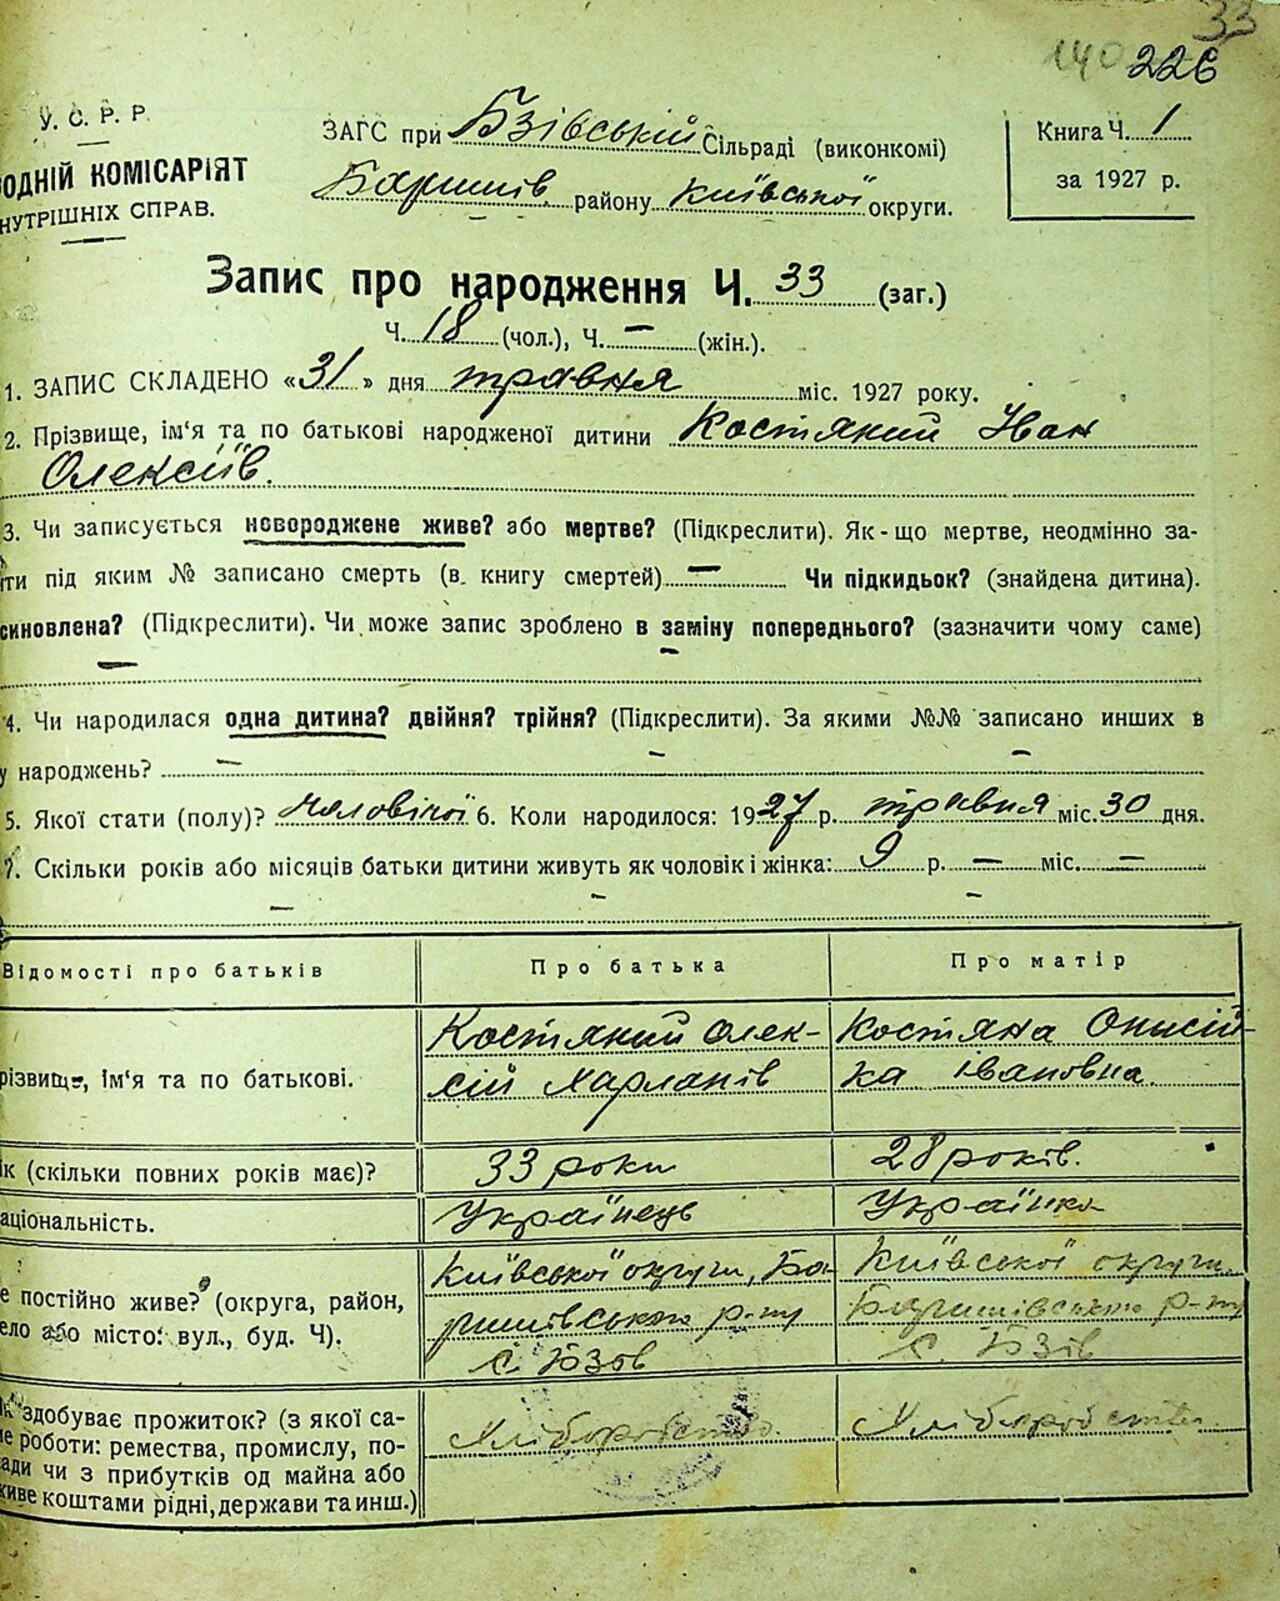 33
140 226
У. С. Р. Р.
ОДНІЙ КОМІСАРІЯТ
НУТРІШНІХ СПРАВ.
ЗАГС при Бзівській Сільраді (виконкомі)
Баришів. району Київської округи.
Книга Ч. 1
за 1927 р.
Запис про народження Ч. 33 (заг.)
Ч. 18 (чол.), Ч. — (жін.).
1. ЗАПИС СКЛАДЕНО «31» дня травня міс. 1927 року.
2. Прізвище, ім‘я та по батькові народженої дитини Костяний Іван
Олексіїв.
3. Чи записується новороджене живе? або мертве? (Підкреслити). Як-що мертве, неодмінно за-
ти під яким № записано смерть (в книгу смертей) — Чи підкидьок? (знайдена дитина).
синовлена? (Підкреслити). Чи може запис зроблено в заміну попереднього? (зазначити чому саме)
— —
4. Чи народилася одна дитина? двійня? трійня? (Підкреслити). За якими №№ записано инших в
у народжень? — — —
5. Якої стати (полу)? Чоловічої 6. Коли народилося: 1927 р. травня міс. 30 дня.
7. Скільки років або місяців батьки дитини живуть як чоловік і жінка: 9 р. — міс. —
— — —
Відомості про батьків
Про батька
Про матір
різвище, ім‘я та по батькові.
Костяний Олек-
сій Харланів
Костяна Онисій-
ка Івановна.
ік (скільки повних років має)?
33 роки
28 років.
аціональність.
Українець
Українка
е постійно живе? (округа, район,
ело або місто: вул., буд. Ч).
Київської округи, Ба-
ришівського р-ну
с. Бзов
Київської округи
Баришівського р-ну
с. Бзів
к здобуває прожиток? (з якої са-
ме роботи: ремества, промислу, по-
ади чи з прибутків од майна або
живе коштами рідні, держави та инш.)
Хліборобство.
Хліборобство.